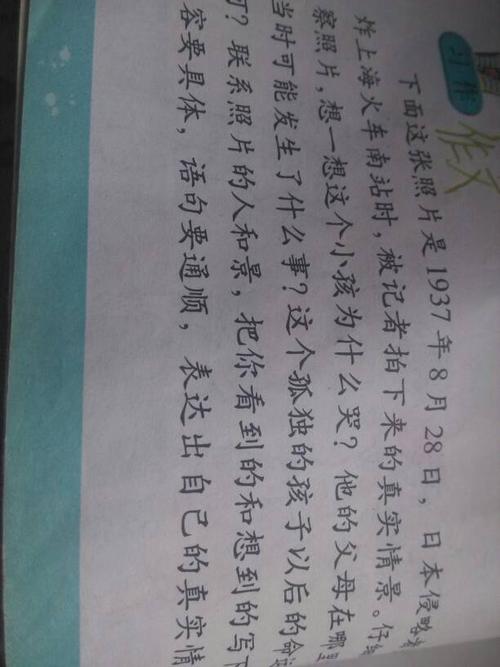 习作
作文
下面这张照片是1937年8月28日，日本侵略
炸上海火车南站时，被记者拍下来的真实情景。仔细
察照片，想一想这个小孩为什么哭？他的父母在哪里
当时可能发生了什么事？这个孤独的孩子以后的命运
何？联系照片的人和景，把你看到的和想到的写下
容要具体，语句要通顺，表达出自己的真实情